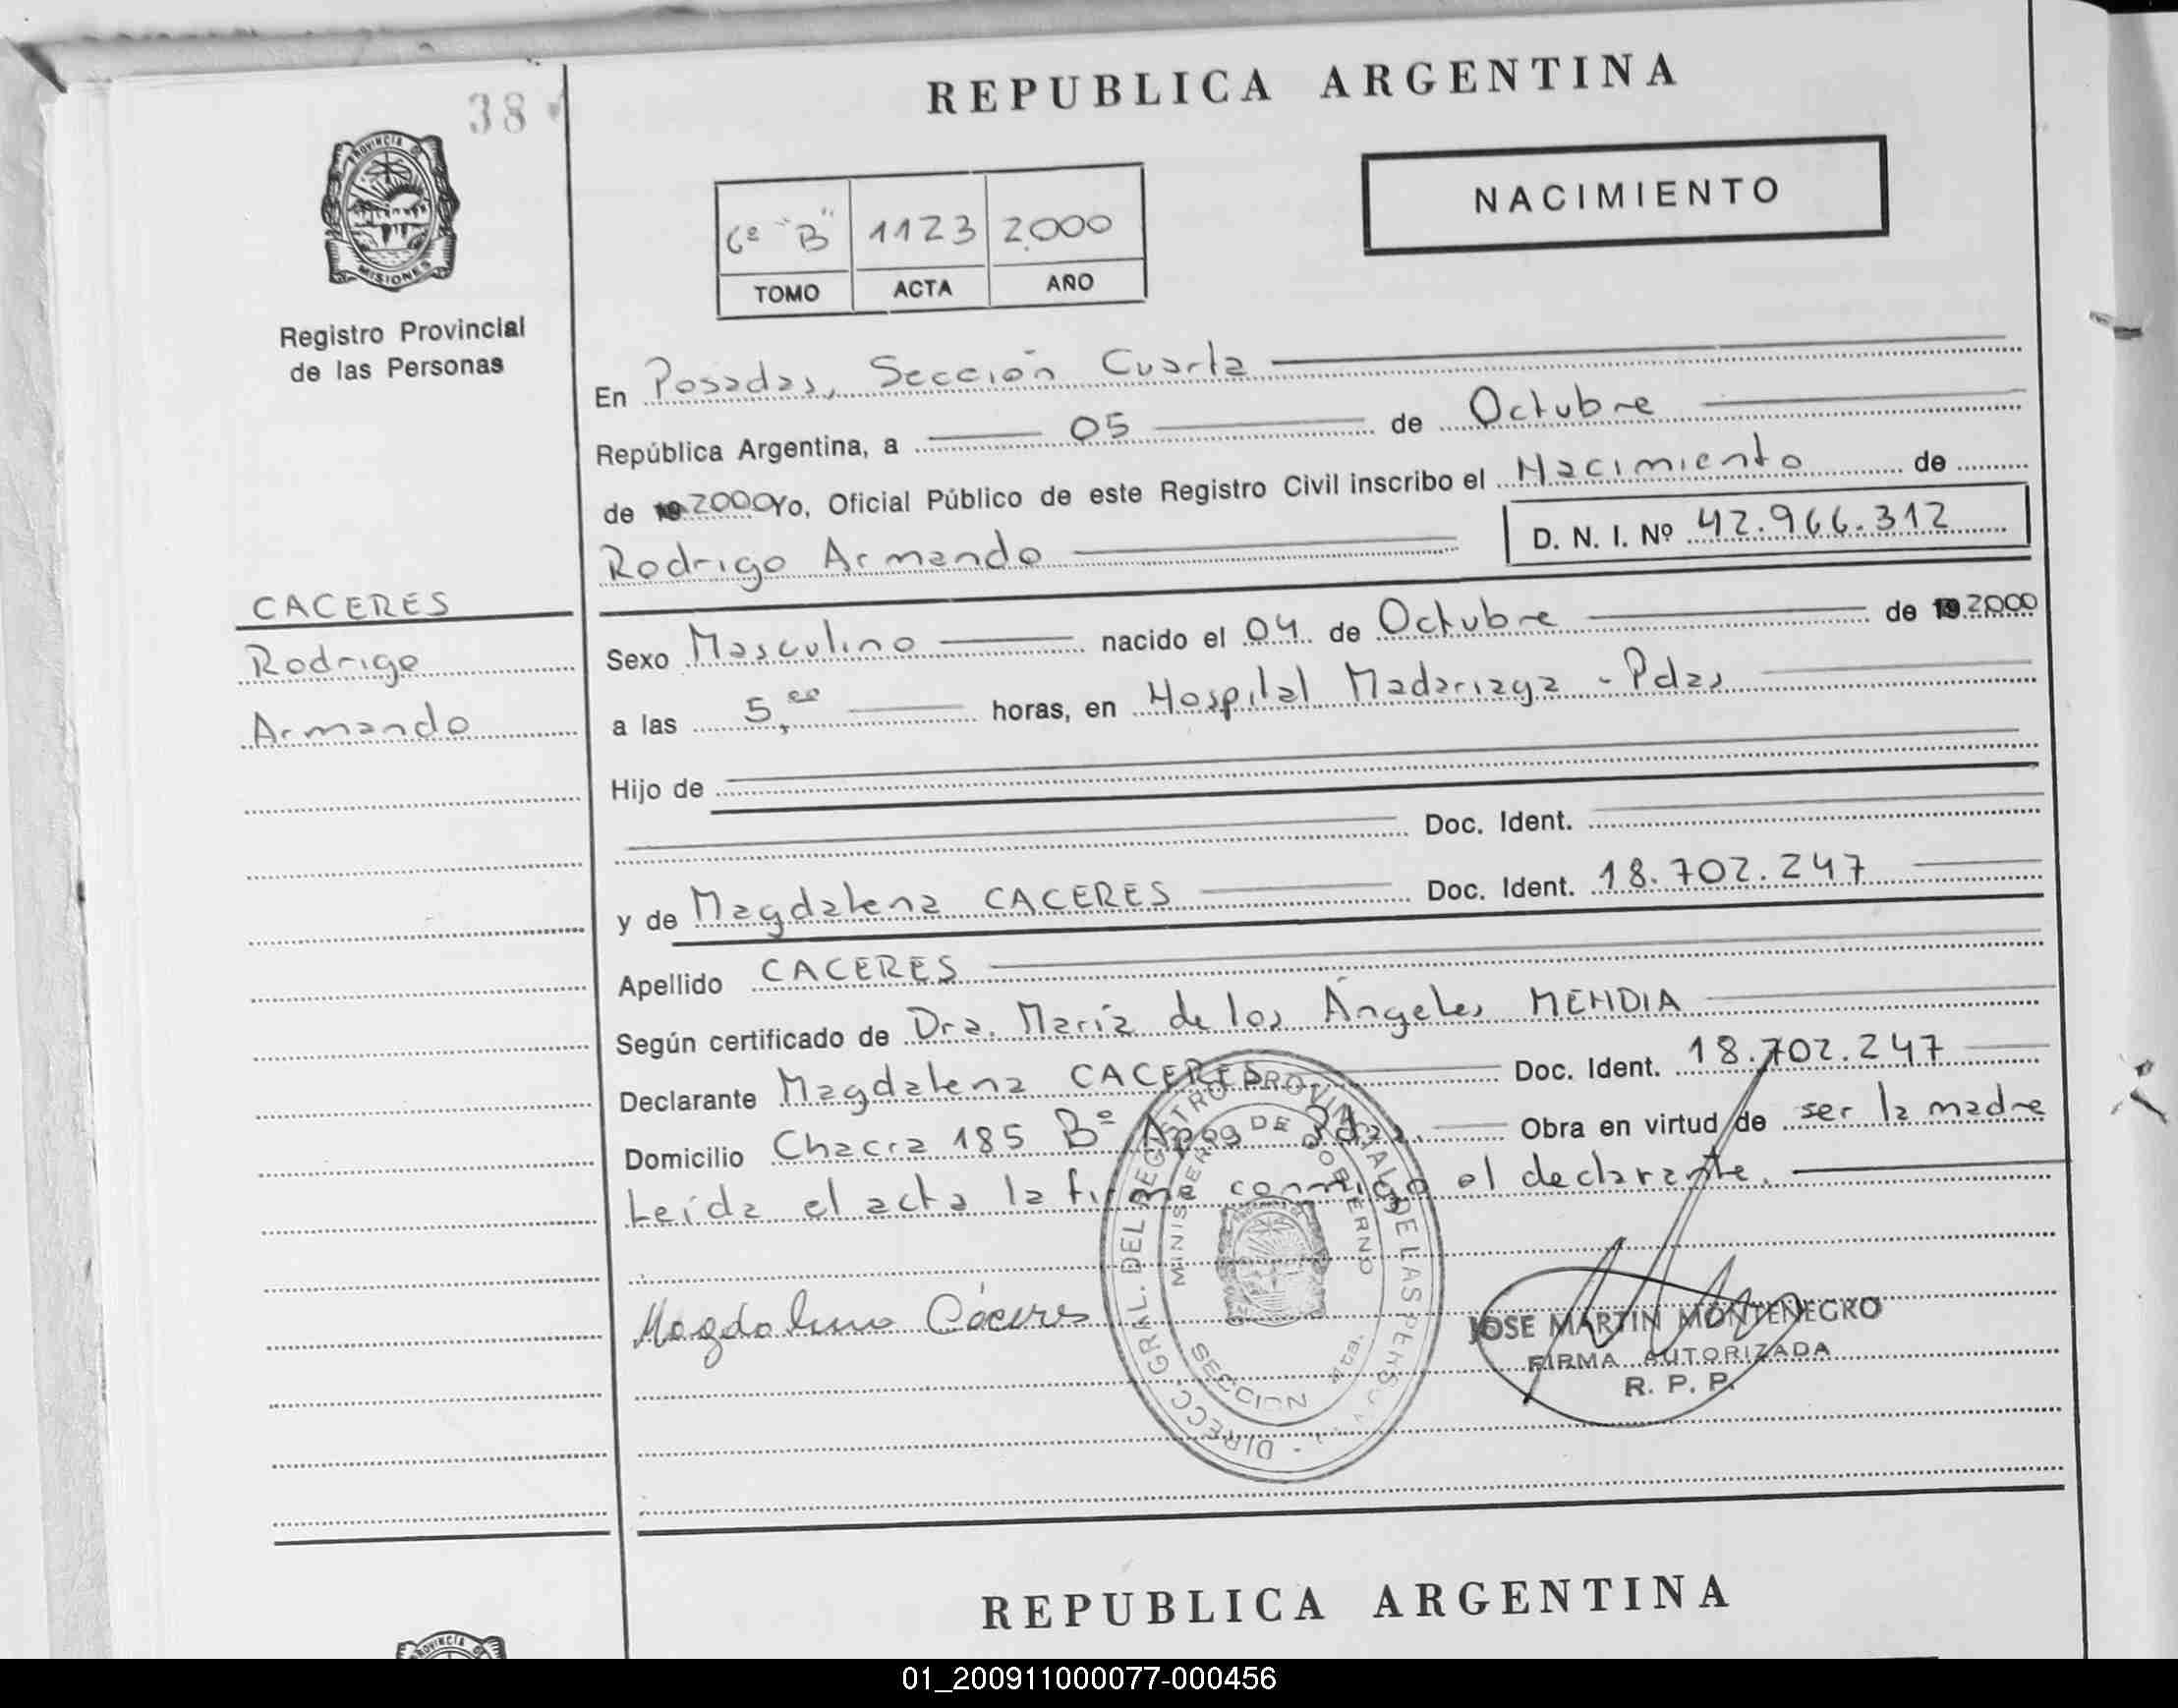 38
REPUBLICA ARGENTINA
PROVINCIA DE
MISIONES
Registro Provincial
de las Personas
NACIMIENTO
6º "B" 1123 2000
TOMO ACTA AÑO
En Posadas, Sección Cuarta
República Argentina, a 05 de Octubre
de 19 2000 Yo, Oficial Público de este Registro Civil inscribo el Nacimiento de
Rodrigo Armando D. N. I. Nº 42.966.312
CACERES
Rodrigo
Armando
Sexo Masculino nacido el 04 de Octubre de 19 2000
a las 5,00 horas, en Hospital Madariaga - Pdas
Hijo de
Doc. Ident.
y de Magdalena CACERES Doc. Ident. 18.702.247
Apellido CACERES
Según certificado de Dra. María de los Ángeles MENDIA
Declarante Magdalena CACERES Doc. Ident. 18.702.247
Domicilio Chacra 185 Bº Apos Pdas. Obra en virtud de ser la madre
Leída el acta la firma conmigo el declarante.
Magdalena Cáceres
DIRECC. GRAL. DEL REGISTRO PROVINCIAL DE LAS PERSONAS
MINISTERIO DE GOBIERNO
SECCION 4ta.
JOSE MARTIN MONTENEGRO
FIRMA AUTORIZADA
R. P. P.
REPUBLICA ARGENTINA
PROVINCIA DE
01_200911000077-000456